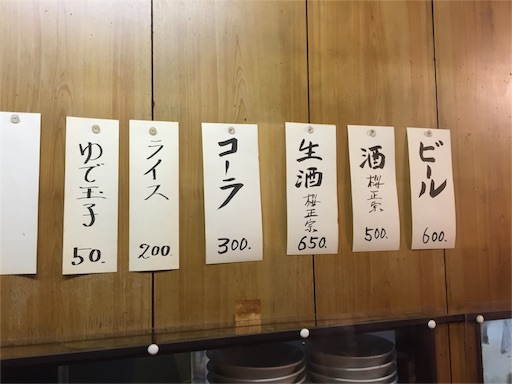 ビール
600.
酒
桜正宗
500.
生酒
桜正宗
650.
コーラ
300.
ライス
200.
ゆで玉子
50.